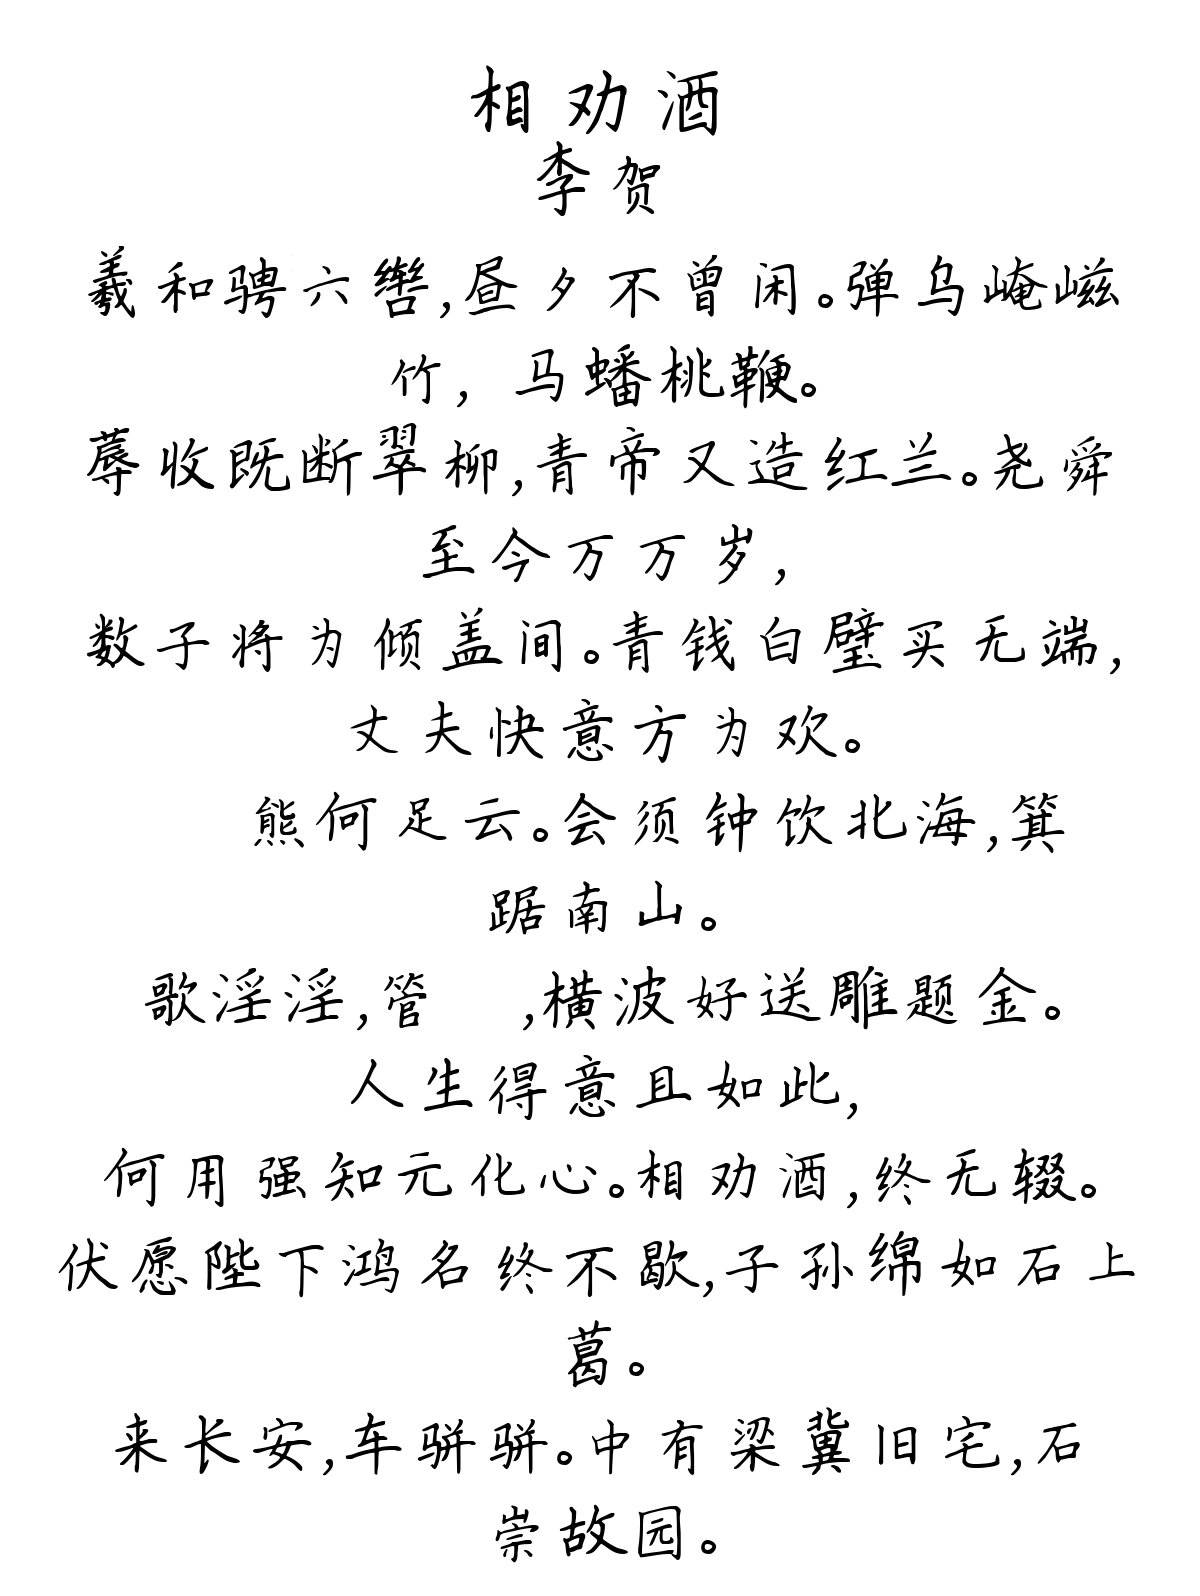 相劝酒
李贺
羲和骋六辔,昼夕不曾闲。弹乌崦嵫
竹,马蟠桃鞭。
蓐收既断翠柳,青帝又造红兰。尧舜
至今万万岁,
数子将为倾盖间。青钱白璧买无端,
丈夫快意方为欢。
熊何足云。会须钟饮北海,箕
踞南山。
歌淫淫,管 ,横波好送雕题金。
人生得意且如此,
何用强知元化心。相劝酒,终无辍。
伏愿陛下鸿名终不歇,子孙绵如石上
葛。
来长安,车骈骈。中有梁冀旧宅,石
崇故园。